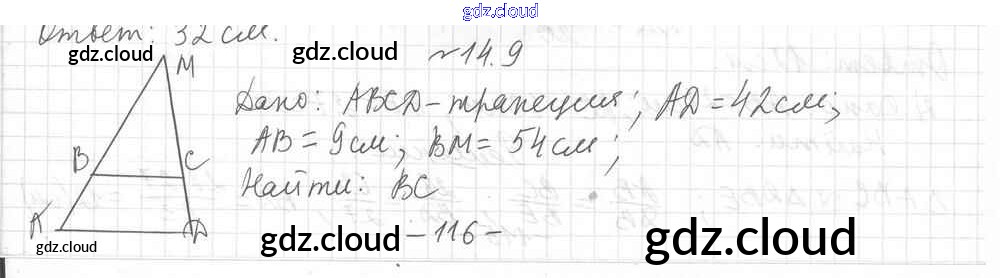 gdz.cloud
Ответ: 32 см.
gdz.cloud gdz.cloud gdz.cloud
№14.9
M
Дано: ABCD-трапеция; AD=42см;
AB=9см; BM=54см;
B C
Найти: BC
A D
-116-
gdz.cloud gdz.cloud gdz.cloud